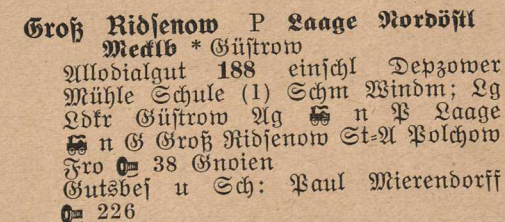 Groß Ridsenow P Laage Nordöstl
Mecklb * Güstrow
Allodialgut 188 einschl Depzower
Mühle Schule (1) Schm Windm; Lg
Ldkr Güstrow Ag 🚂 n P Laage
🚂 n G Groß Ridsenow St=A Polchow
Fro 38 Gnoien
Gutsbes u Sch: Paul Mierendorff
226